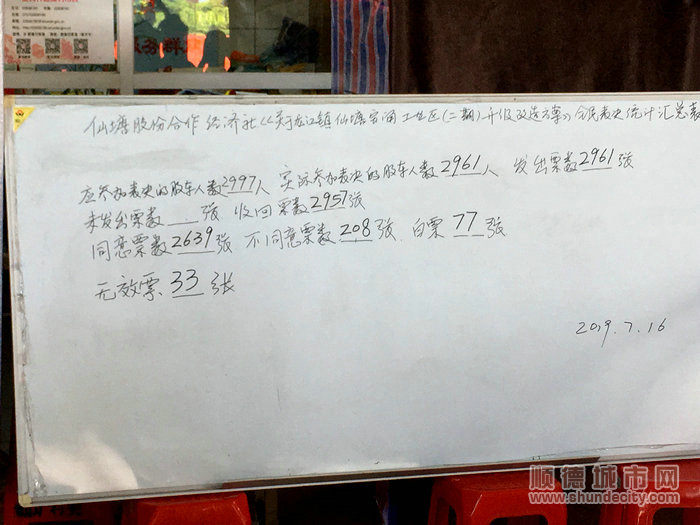 仙塘股份合作经济社《关于龙江镇仙塘宦涌工业区(二期)升级改造方案》全民表决统计汇总表
应参加表决的股东人数2997人 实际参加表决的股东人数2961人 发出票数2961张
未发出票数 张 收回票数2957张
同意票数2639张 不同意票数208张 白票77张
无效票33张
2019.7.16
顺德城市网
www.shundecity.com